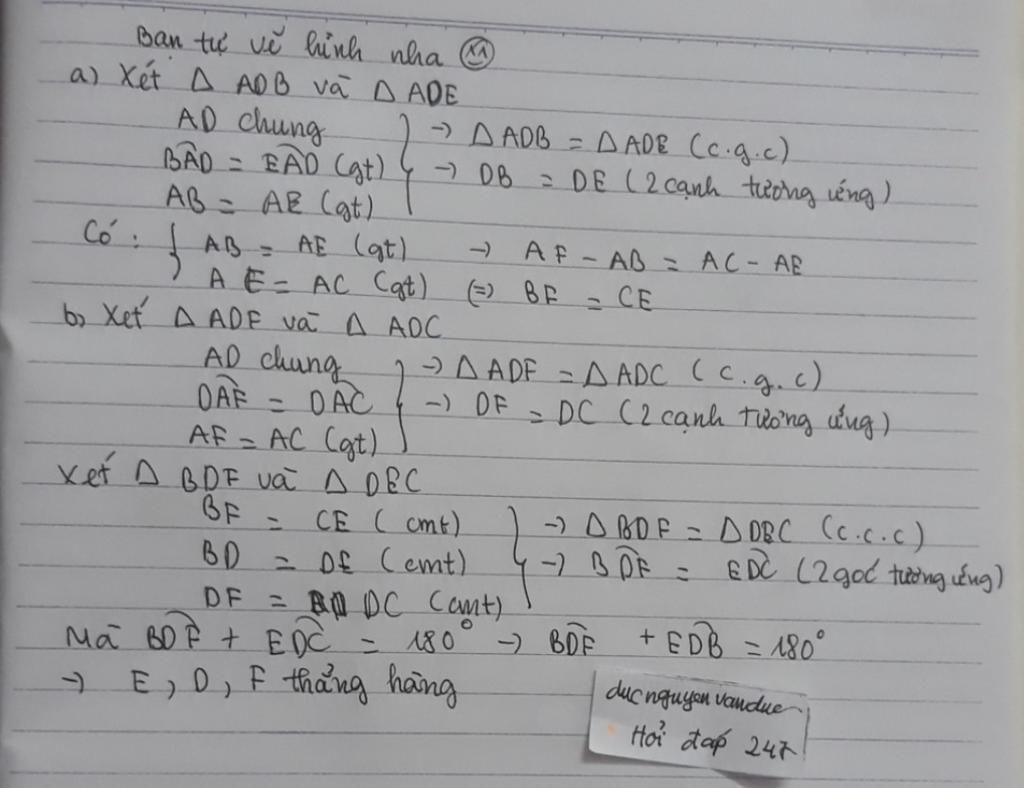 Bạn tự vẽ hình nha
a) Xét Δ ADB và Δ ADE
AD chung
BAD = EAD (gt)
AB = AE (gt)
→ Δ ADB = Δ ADE (c.g.c)
→ DB = DE (2 cạnh tương ứng)
Có : { AB = AE (gt) → AF - AB = AC - AE
A E = AC (gt) (=) BF = CE
b, Xét Δ ADF và Δ ADC
AD chung
DAF = DAC
AF = AC (gt)
→ Δ ADF = Δ ADC (c.g.c)
→ DF = DC (2 cạnh tương ứng)
Xét Δ BDF và Δ DEC
BF = CE (cmt)
BD = DE (cmt)
DF = DC (cmt)
→ Δ BDF = Δ DEC (c.c.c)
→ BDF = EDC (2 góc tương ứng)
Mà BDF + EDC = 180° → BDF + EDB = 180°
→ E, D, F thẳng hàng
ducnguyenvanduc
Hỏi đáp 247